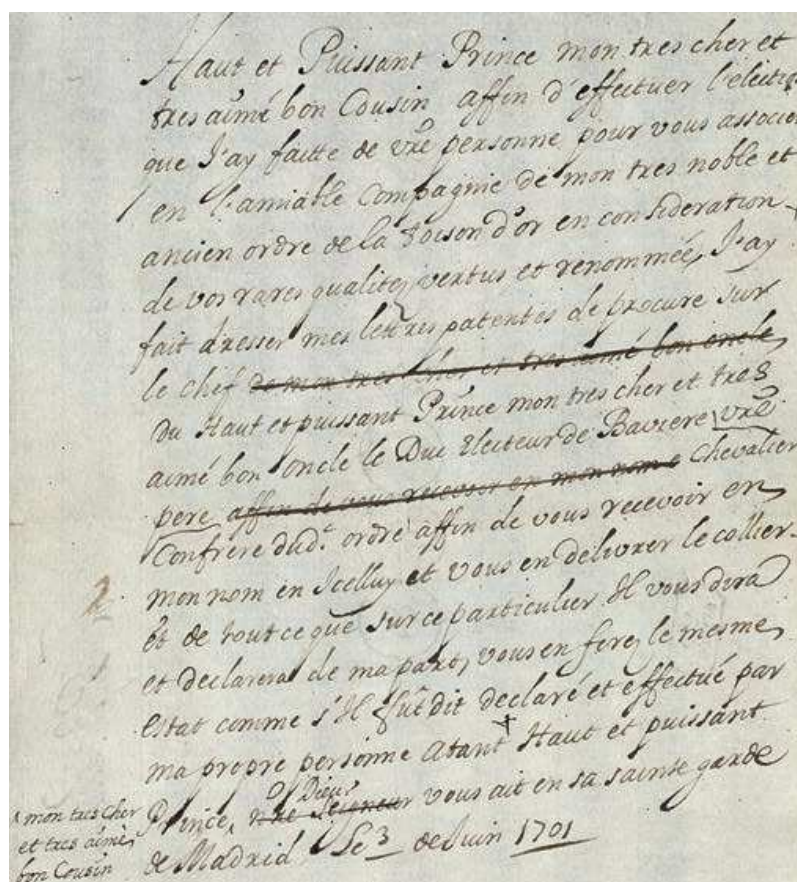 Haut et Puissant Prince mon tres cher et
tres aimé bon Cousin affin d'effectuer l'électio
que J'ay faitte de vrẽ personne pour vous associer
en l'amiable Compagnie de mon tres noble et
ancien ordre de la Toison d'or en consideration
de vos rares qualitez vertus et renommée, J'ay
fait dresser mes lettres patentes de procure sur
le chef de mon tres cher et tres aimé bon oncle
du Haut et puissant Prince mon tres cher et tres
aimé bon oncle le Duc Electeur de Baviere vrẽ
pere affin de vous recevoir en mon nom e Chevalier
Confrere dud.t ordre affin de vous recevoir en
mon nom en Icelluy et vous en delivrer le collier
et de tout ce que sur ce particulier Il vous dira
et declarera de ma part, vous en ferez le mesme
estat comme s'Il fût dit declaré et effectué par
ma propre personne Atant Haut et puissant
Dieu
Prince, nrẽ Seigneur vous ait en sa sainte garde
de Madrid Le 3 de Juin 1701
mon tres cher
et tres aimé
bon Cousin